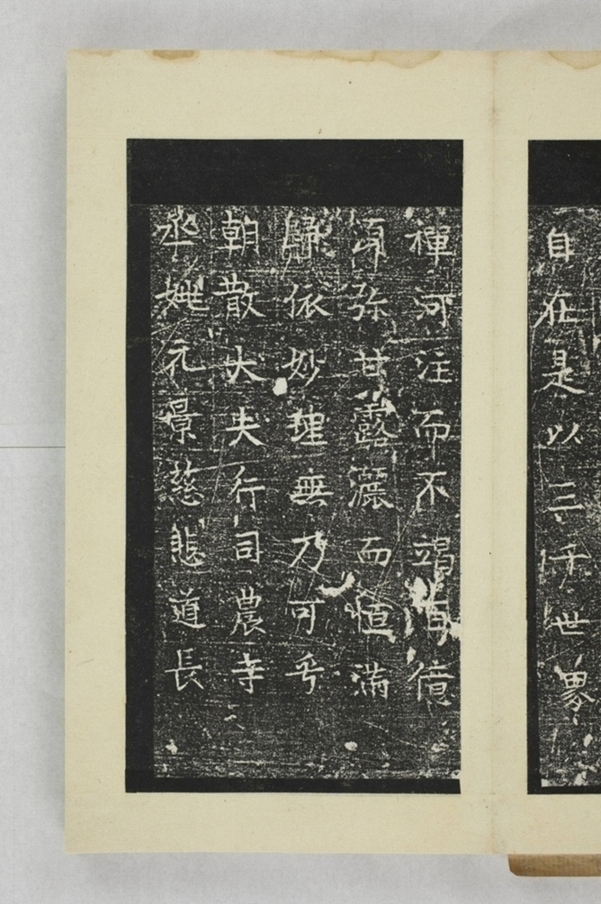 自在是以三千世界
禪河注而不竭百億
須弥甘露灑而恒滿
歸依妙理無乃可乎
朝散大夫行司農寺
丞姚元景慈悲道長